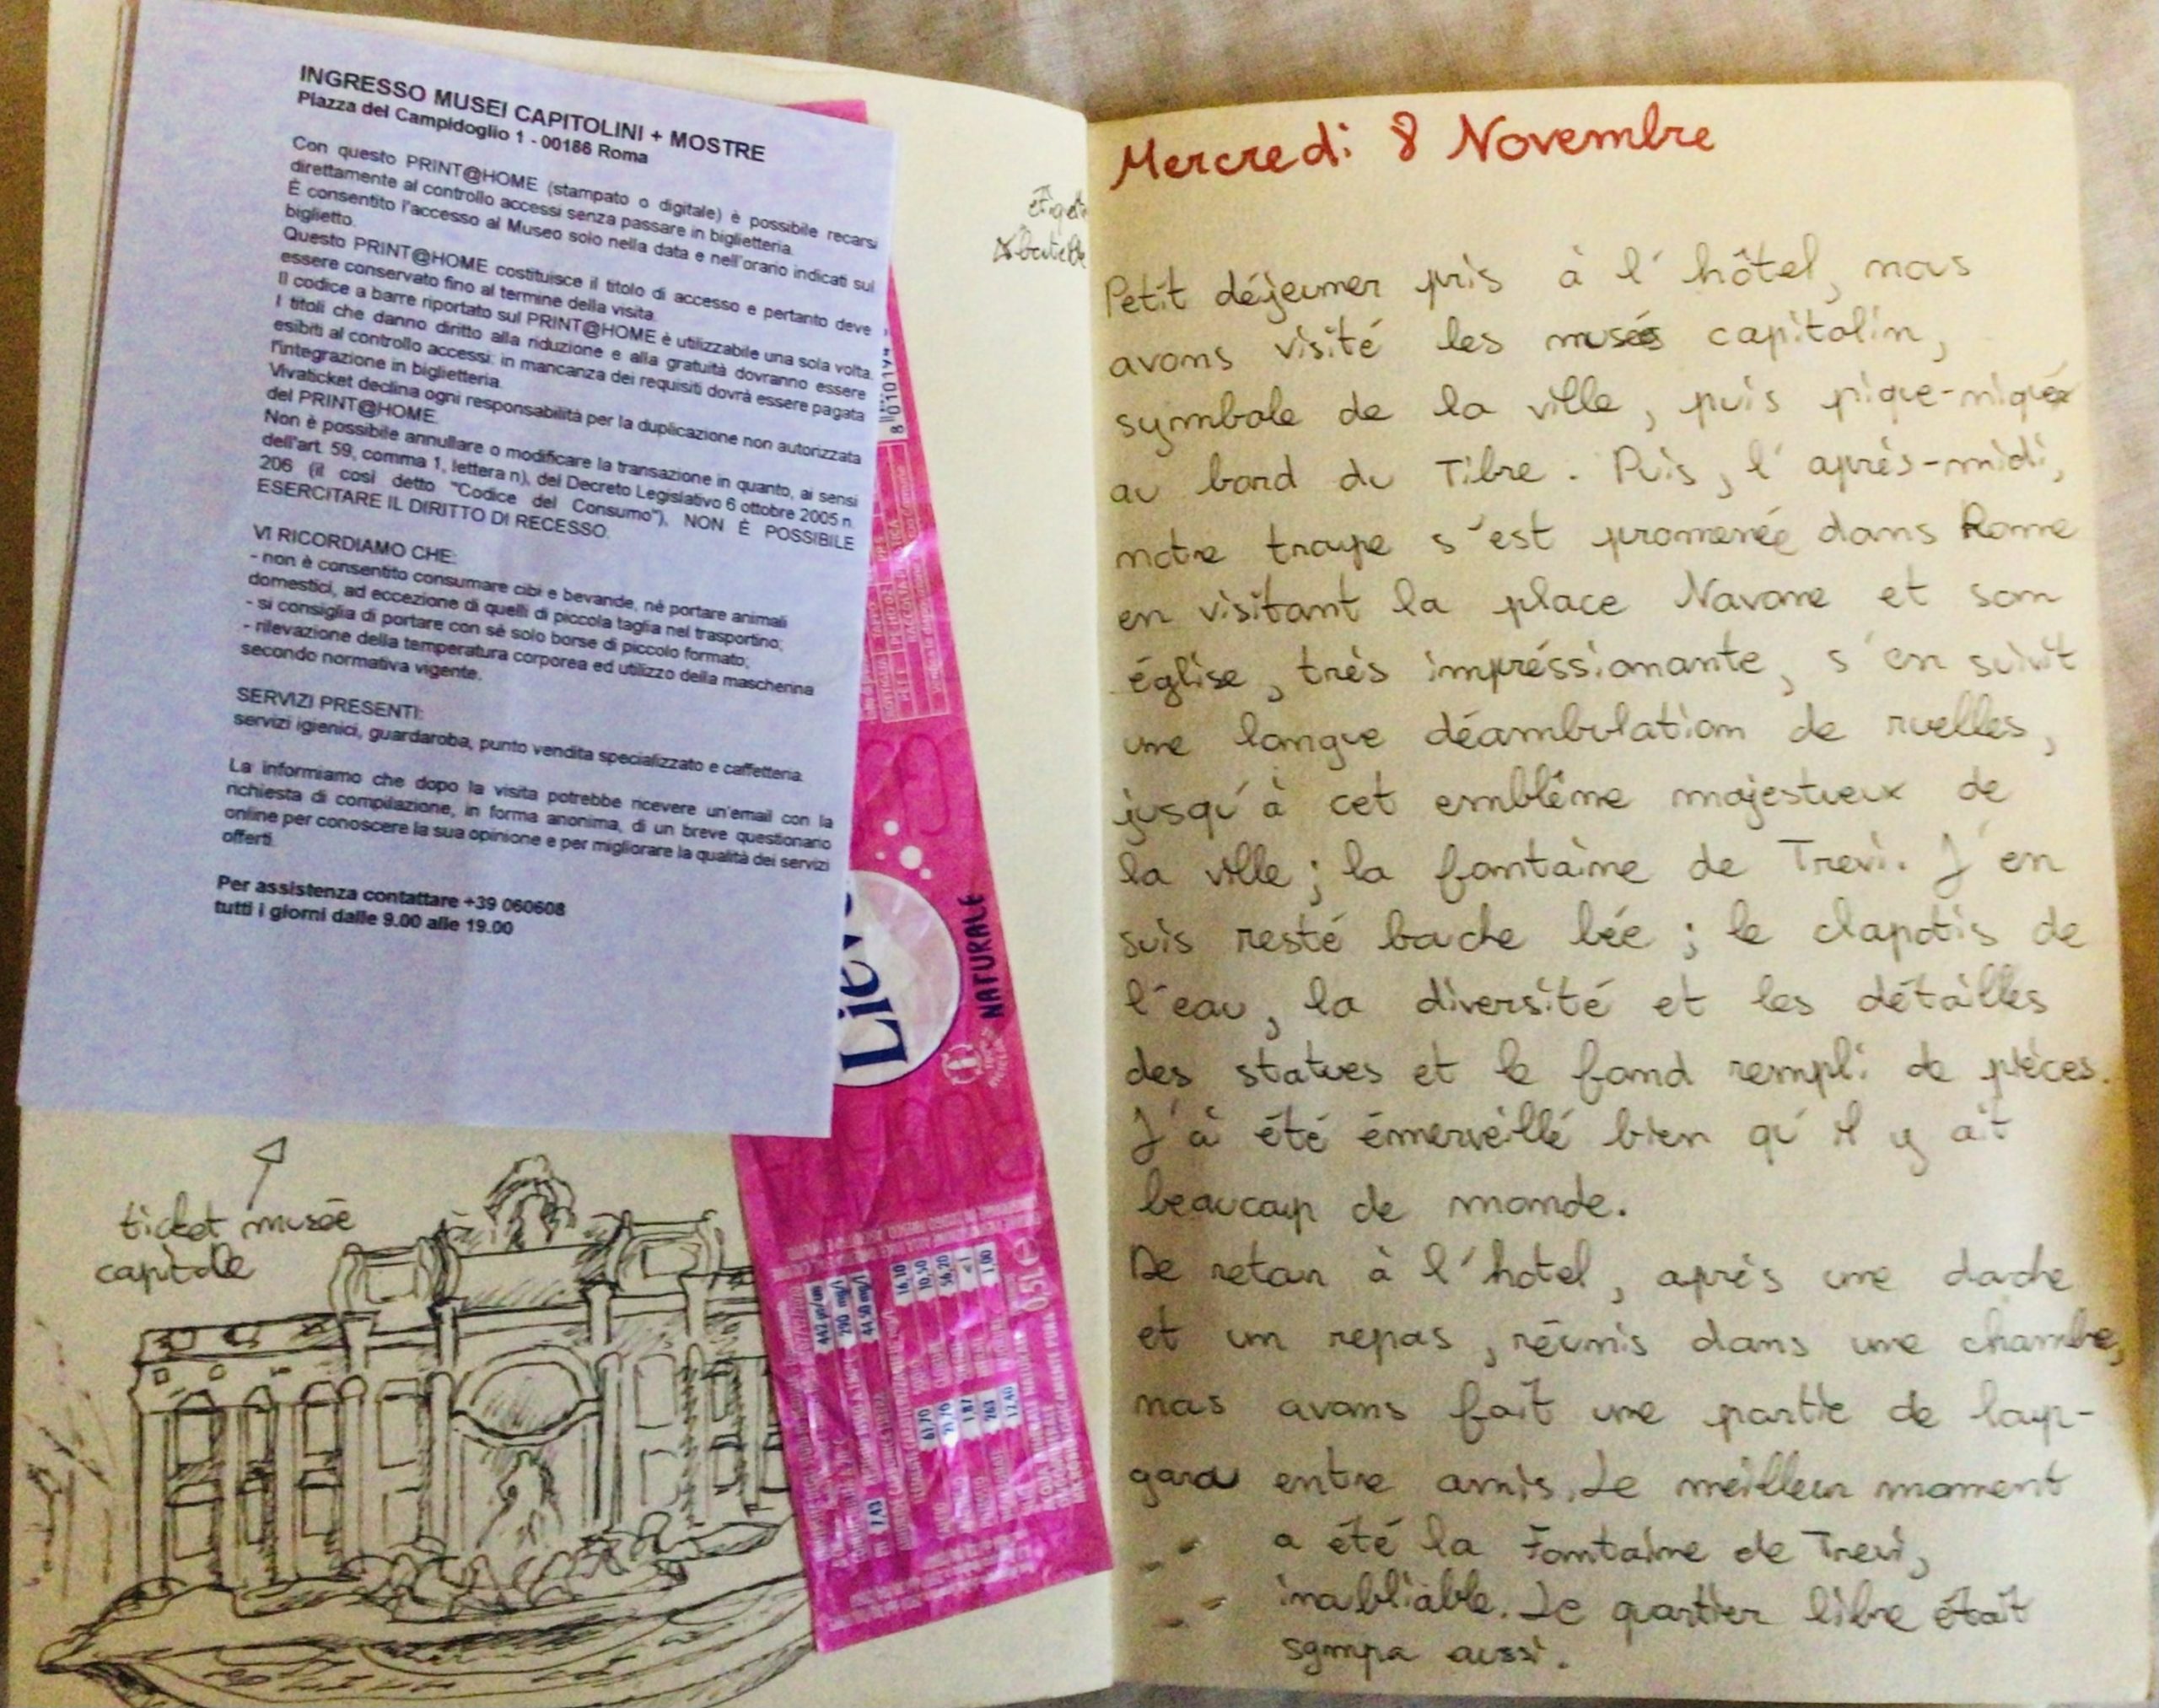 INGRESSO MUSEI CAPITOLINI + MOSTRE
Piazza del Campidoglio 1 - 00186 Roma
Con questo PRINT@HOME (stampato o digitale) è possibile recarsi
direttamente al controllo accessi senza passare in biglietteria.
È consentito l'accesso al Museo solo nella data e nell'orario indicati sul
biglietto.
Questo PRINT@HOME costituisce il titolo di accesso e pertanto deve
essere conservato fino al termine della visita.
Il codice a barre riportato sul PRINT@HOME è utilizzabile una sola volta.
I titoli che danno diritto alla riduzione e alla gratuità dovranno essere
esibiti al controllo accessi: in mancanza dei requisiti dovrà essere pagata
l'integrazione in biglietteria.
Vivaticket declina ogni responsabilità per la duplicazione non autorizzata
del PRINT@HOME.
Non è possibile annullare o modificare la transazione in quanto, ai sensi
dell'art. 59, comma 1, lettera n), del Decreto Legislativo 6 ottobre 2005 n.
206 (il così detto "Codice del Consumo"), NON È POSSIBILE
ESERCITARE IL DIRITTO DI RECESSO.
VI RICORDIAMO CHE:
- non è consentito consumare cibi e bevande, né portare animali
domestici, ad eccezione di quelli di piccola taglia nel trasportino;
- si consiglia di portare con sé solo borse di piccolo formato;
- rilevazione della temperatura corporea ed utilizzo della mascherina
secondo normativa vigente.
SERVIZI PRESENTI:
servizi igienici, guardaroba, punto vendita specializzato e caffetteria.
La informiamo che dopo la visita potrebbe ricevere un'email con la
richiesta di compilazione, in forma anonima, di un breve questionario
online per conoscere la sua opinione e per migliorare la qualità dei servizi
offerti.
Per assistenza contattare +39 060608
tutti i giorni dalle 9.00 alle 19.00
ticket musée
capitole
NATURALE
442 µs/cm
290 mg/l
44,50 mg/l
7,43
16,10
10,50
56,20
<1
1,00
61,70
1,87
263
12,40
0,5L e
Mercredi 8 Novembre
Petit déjeuner pris à l'hôtel, nous
avons visité les musés capitolin,
symbole de la ville, puis pique-niqué
au bord du Tibre. Puis, l'après-midi,
notre troupe s'est promenée dans Rome
en visitant la place Navone et son
église, très impréssionante, s'en suivit
une longue déambulation de ruelles,
jusqu'à cet emblême majestueux de
la ville ; la fontaine de Trevi. J'en
suis resté bouche bée ; le clapotis de
l'eau, la diversité et les détailles
des statues et le fond rempli de pièces.
J'ai été émerveillé bien qu'il y ait
beaucoup de monde.
De retour à l'hotel, après une douche
et un repas, réunis dans une chambre,
nous avons fait une partie de loup-
garou entre amis. Le meilleur moment
a été la Fontaine de Trevi,
inoubliable. Le quartier libre était
sympa aussi.